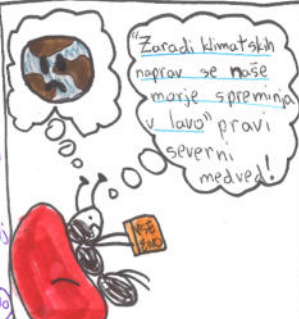 "Zaradi klimatskih
naprav se naše
morje spreminja
v lavo" pravi
severni
medved!